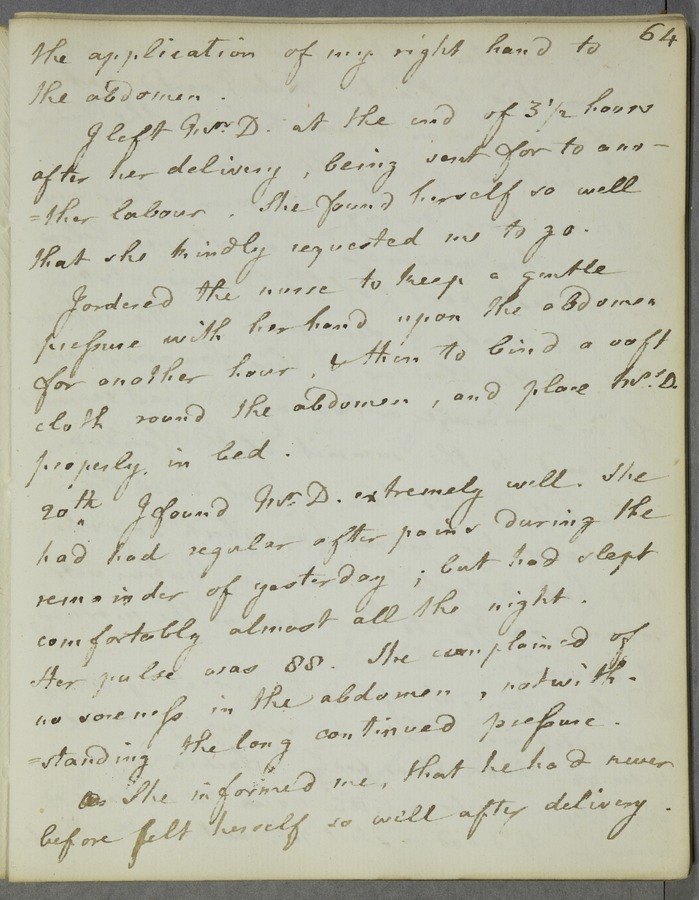 64
the application of my right hand to
the abdomen.
I left Mrs. D. at the end of 3 1/2 hours
after her delivery, being sent for to ano-
=ther labour. She found herself so well
that she kindly requested me to go.
I ordered the nurse to keep a gentle
pressure with her hand upon the abdomen
for another hour, & then to bind a soft
cloth round the abdomen, and place Mrs. D.
properly in bed.
20th I found Mrs. D. extremely well. She
had had regular after pains during the
remainder of yesterday; but had slept
comfortably almost all the night.
Her pulse was 88. She complained of
no soreness in the abdomen, notwith-
=standing the long continued pressure.
She informed me, that he had never
before felt herself so well after delivery.